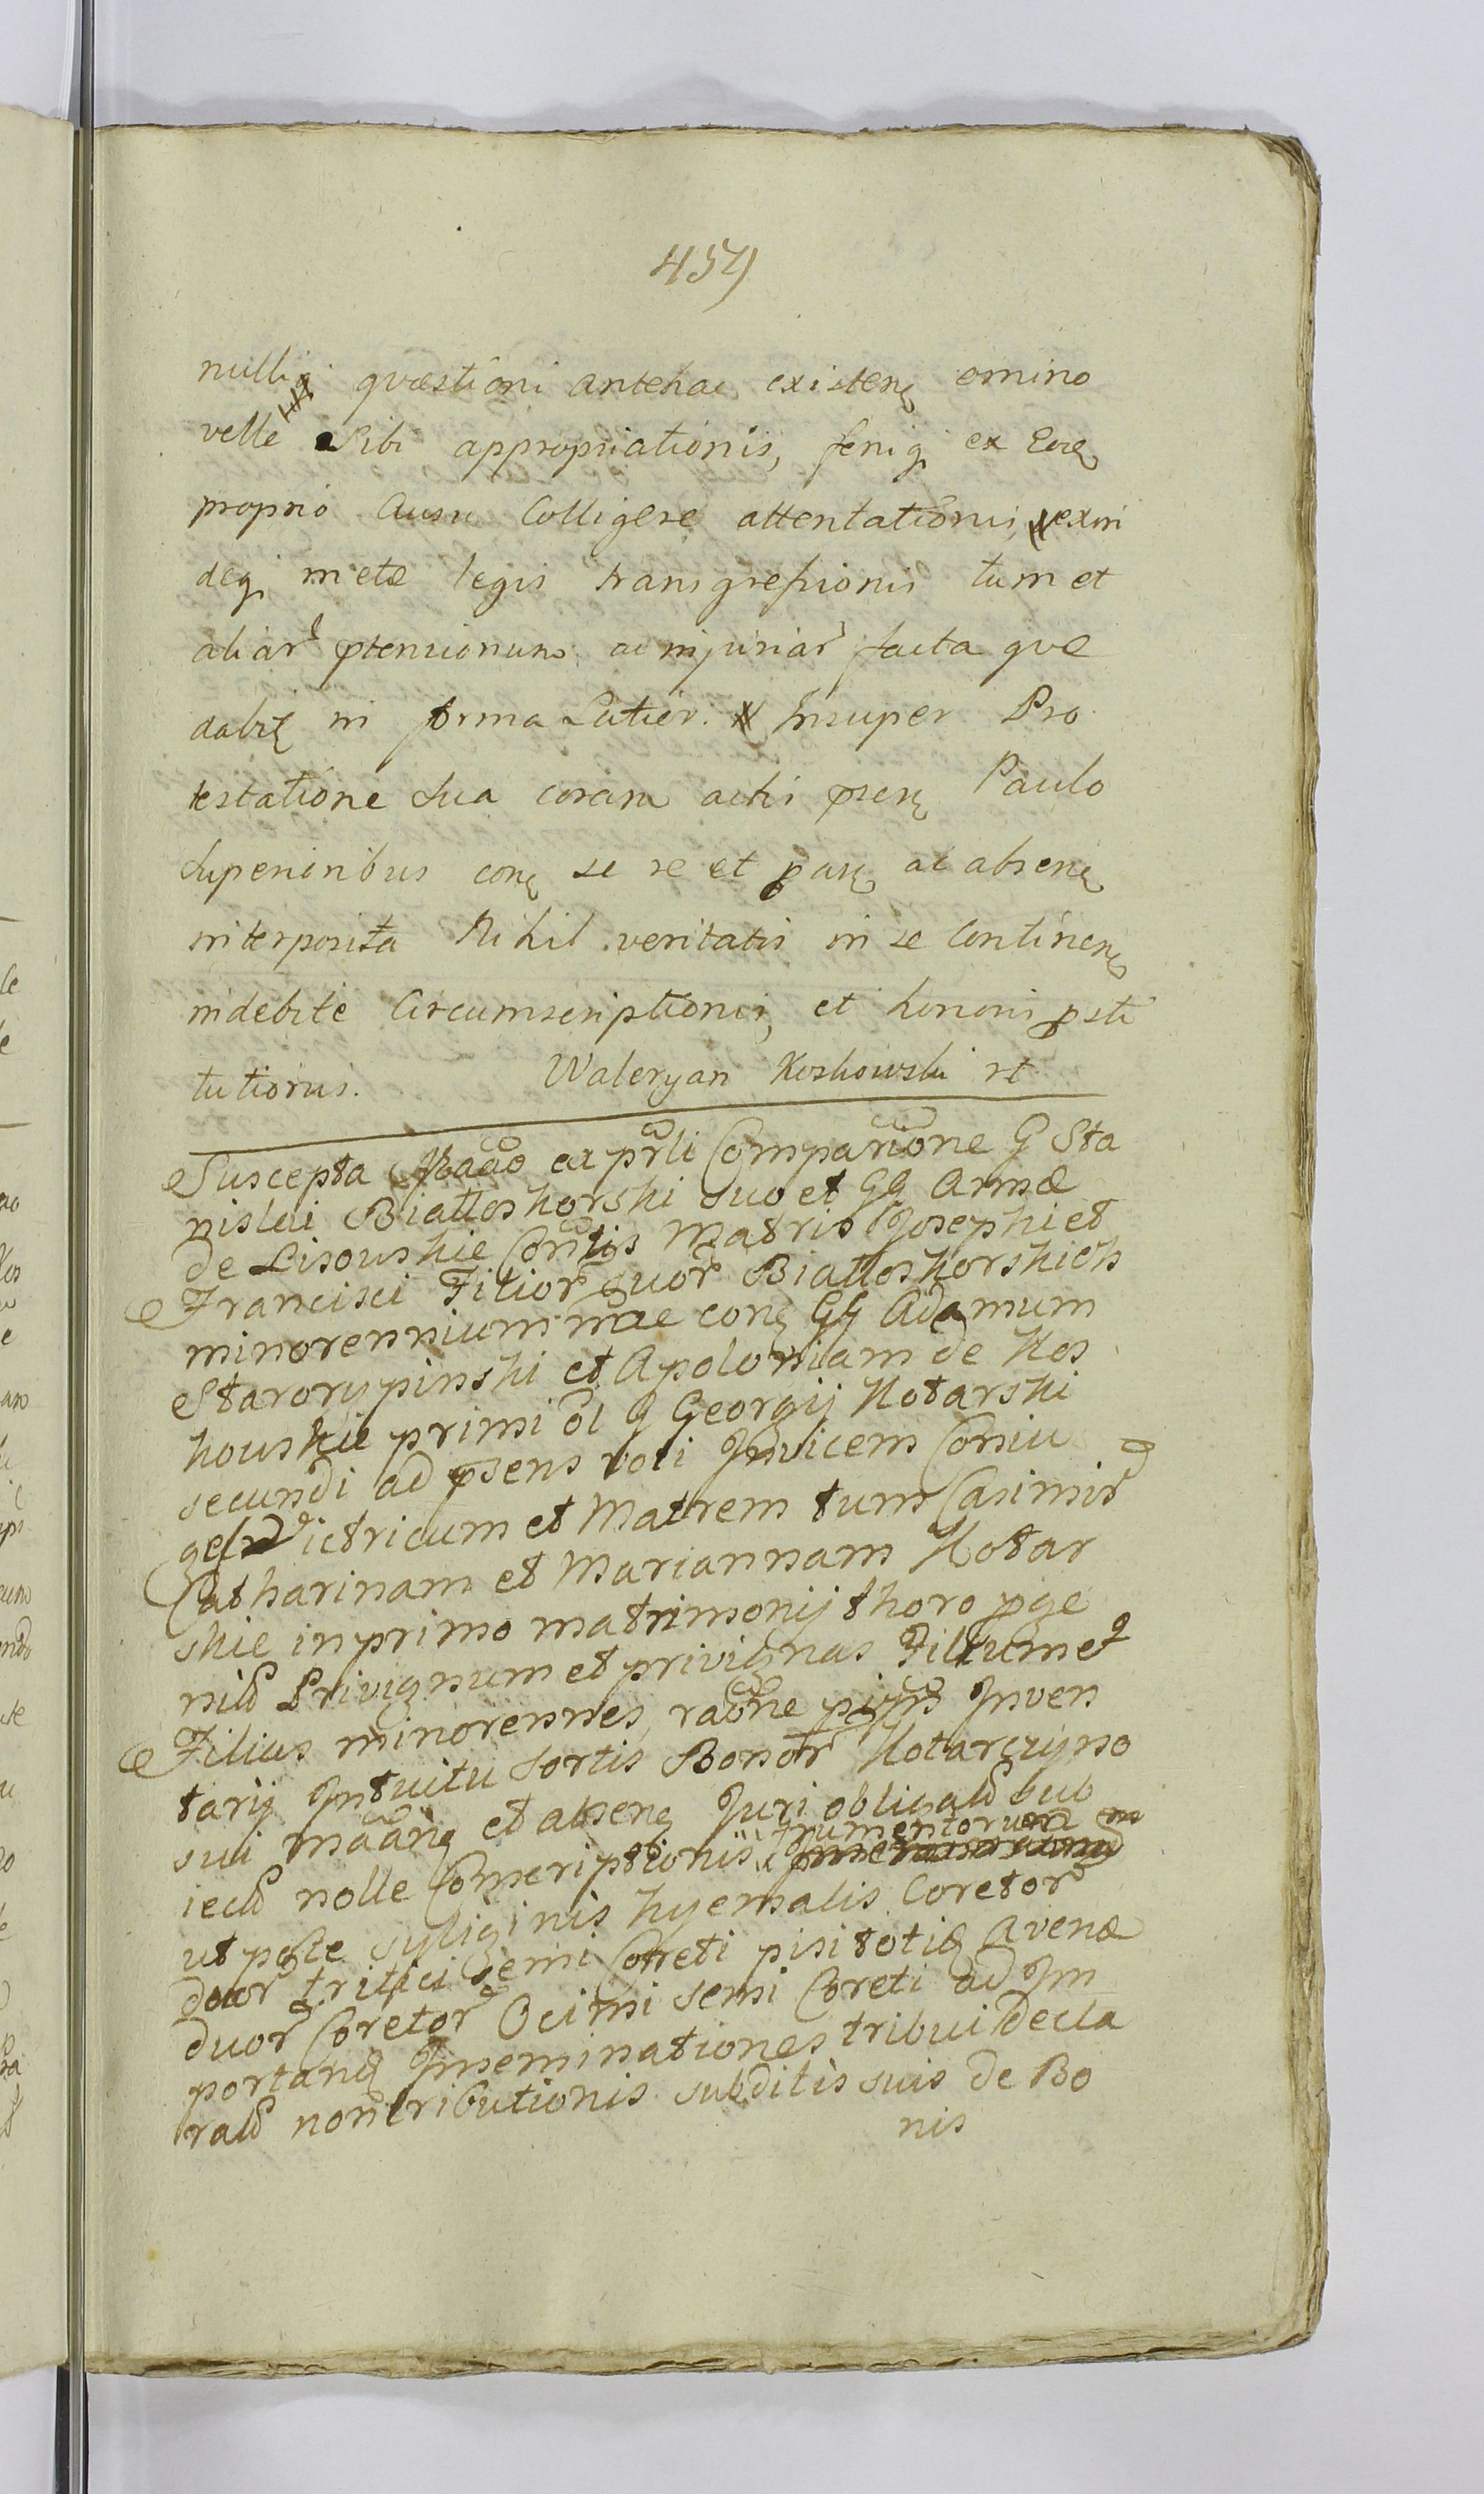 459
nulliq quæstioni antehac existenę omino
velle Sibi appropriationis, fenig ex Eorę
proprio Ausu Colligere attentationis, exin
deq metæ legis transgressionis tum et
aliar ptensionum ac injuriar facta quæ
dabit in forma Latior. Insuper Pro
testatione Sua coram actis psenę Paulo
Superioribus conę se re et parę ac absenę
interposita Nihil veritatis in se Continenę
indebite Circumscriptionis, et honori psti
tutionis. Waleryan Koskowski
Suscepta ex prli Comparicione G Sta
nislai Biattoskorski suo et GG Annæ
de Lisouskie Consortis Matris Josephi et
Francisci Filior suor Biattoskorskich
minorennium nõie conę GG Adamum
Starorypinski et Apoloniam de Kos
houskie primi ol G Georgij Kotarski
secundi ad psens voti Invicem Coniu
ges Victricum et Matrem tum Casimir
Catharinam et Mariannam Kotar
skie in primo matrimonij thoro pge
nit Privignum et privignas Filium et
Filias minorennes, raõne Inven
tarij Intuitu Sortis Bonor Kotarczyno
sui et absenę Juri obligat sub
iect nolle Conscriptionis, frumentorum
ut pote syliginis hyemalis Coretor
duor tritici semi Coreti pisi totiq avenæ
duor Coretor Ocimi semi Coreti ad Im
portanę Inseminationes tribui decla
rat non tributionis subditis suis de Bo
nis